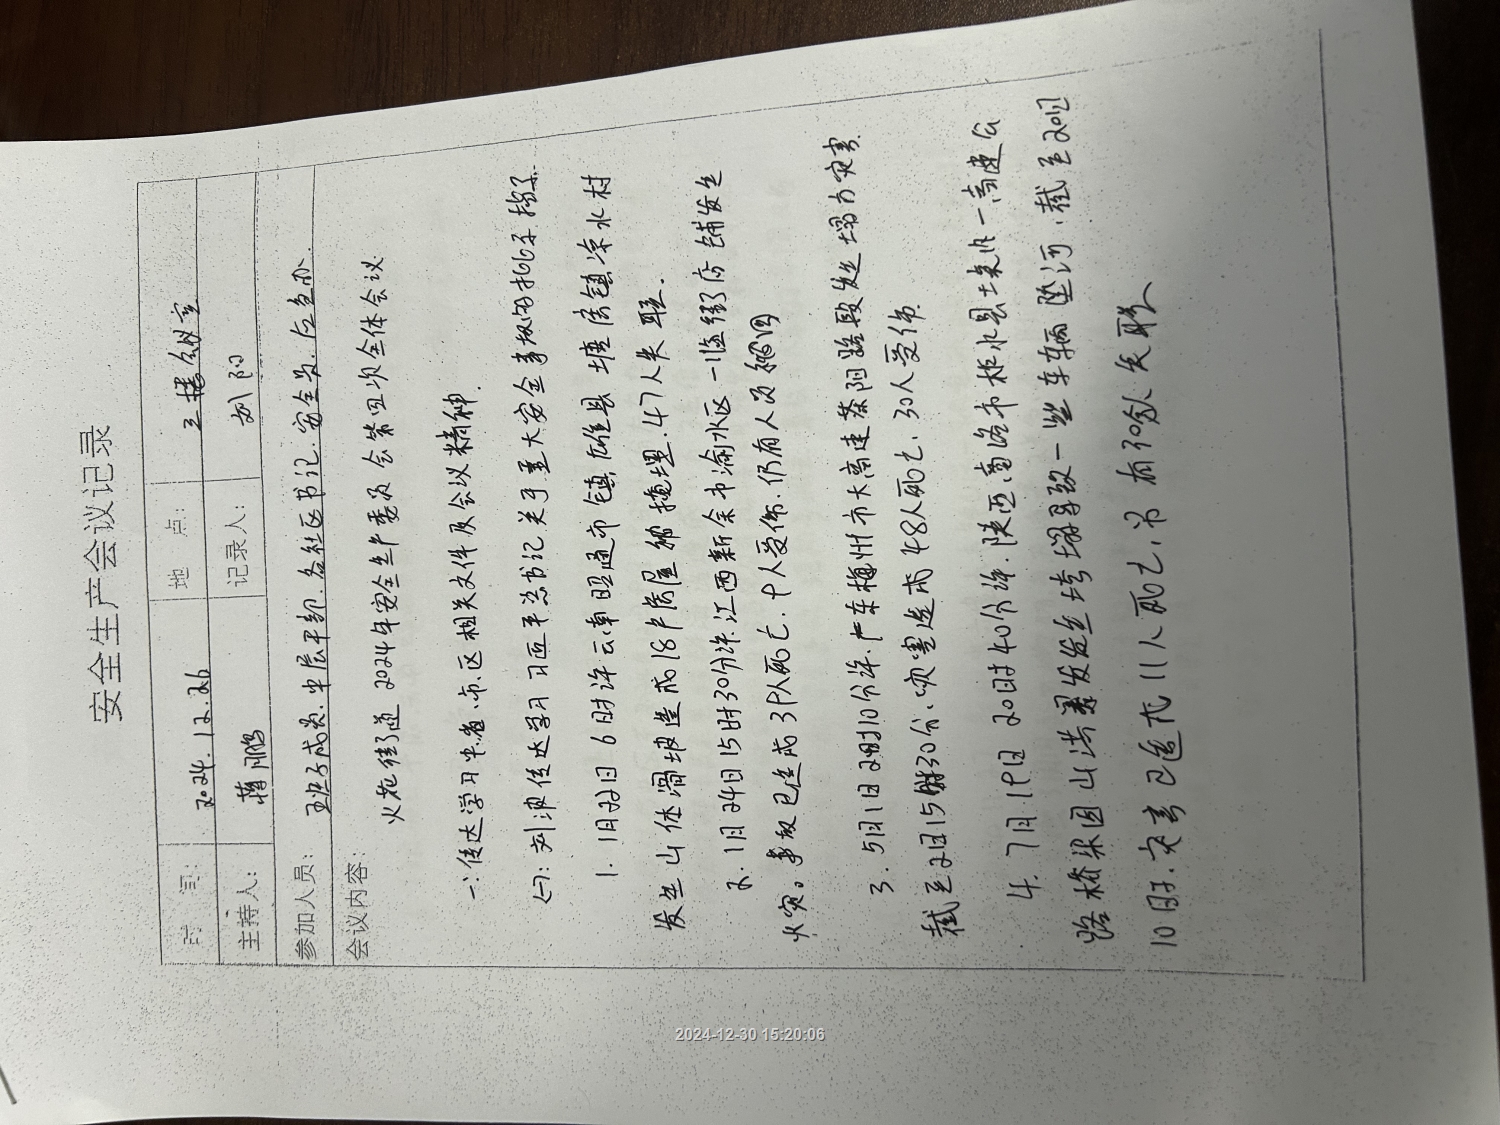 安全生产会议记录
时 间: 2024.12.26 地 点: 三楼会议室
主持人: 蒋鹏 记录人: 刘阳
参加人员: 班子成员.中层干部.各社区书记.安全员.应急办.
会议内容:
火花街道2024年安全生产委员会第四次全体会议
一:传达学习中.省.市.区相关文件及会议精神.
(一):刘波传达学习习近平总书记关于重大安全事故的批示指示.
1. 1月22日6时许云南昭通市镇雄县塘房镇凉水村
发生山体滑坡造成18户房屋被掩埋.47人失联.
2. 1月24日15时30分许.江西新余市渝水区一临街店铺发生
火灾。事故已造成39人死亡.9人受伤.仍有人员被困
3. 5月1日2时10分许.广东梅州市大高速茶阳路段发生塌方灾害.
截至2日15时30分.灾害造成48人死亡.30人受伤.
4. 7月19日20时40分许.陕西商洛市柞水县境内一高速公
路桥梁因山洪暴发发生垮塌导致一些车辆坠河.截至20日
10时.灾害已造成11人死亡.另有30余人失联
2024-12-30 15:20:06